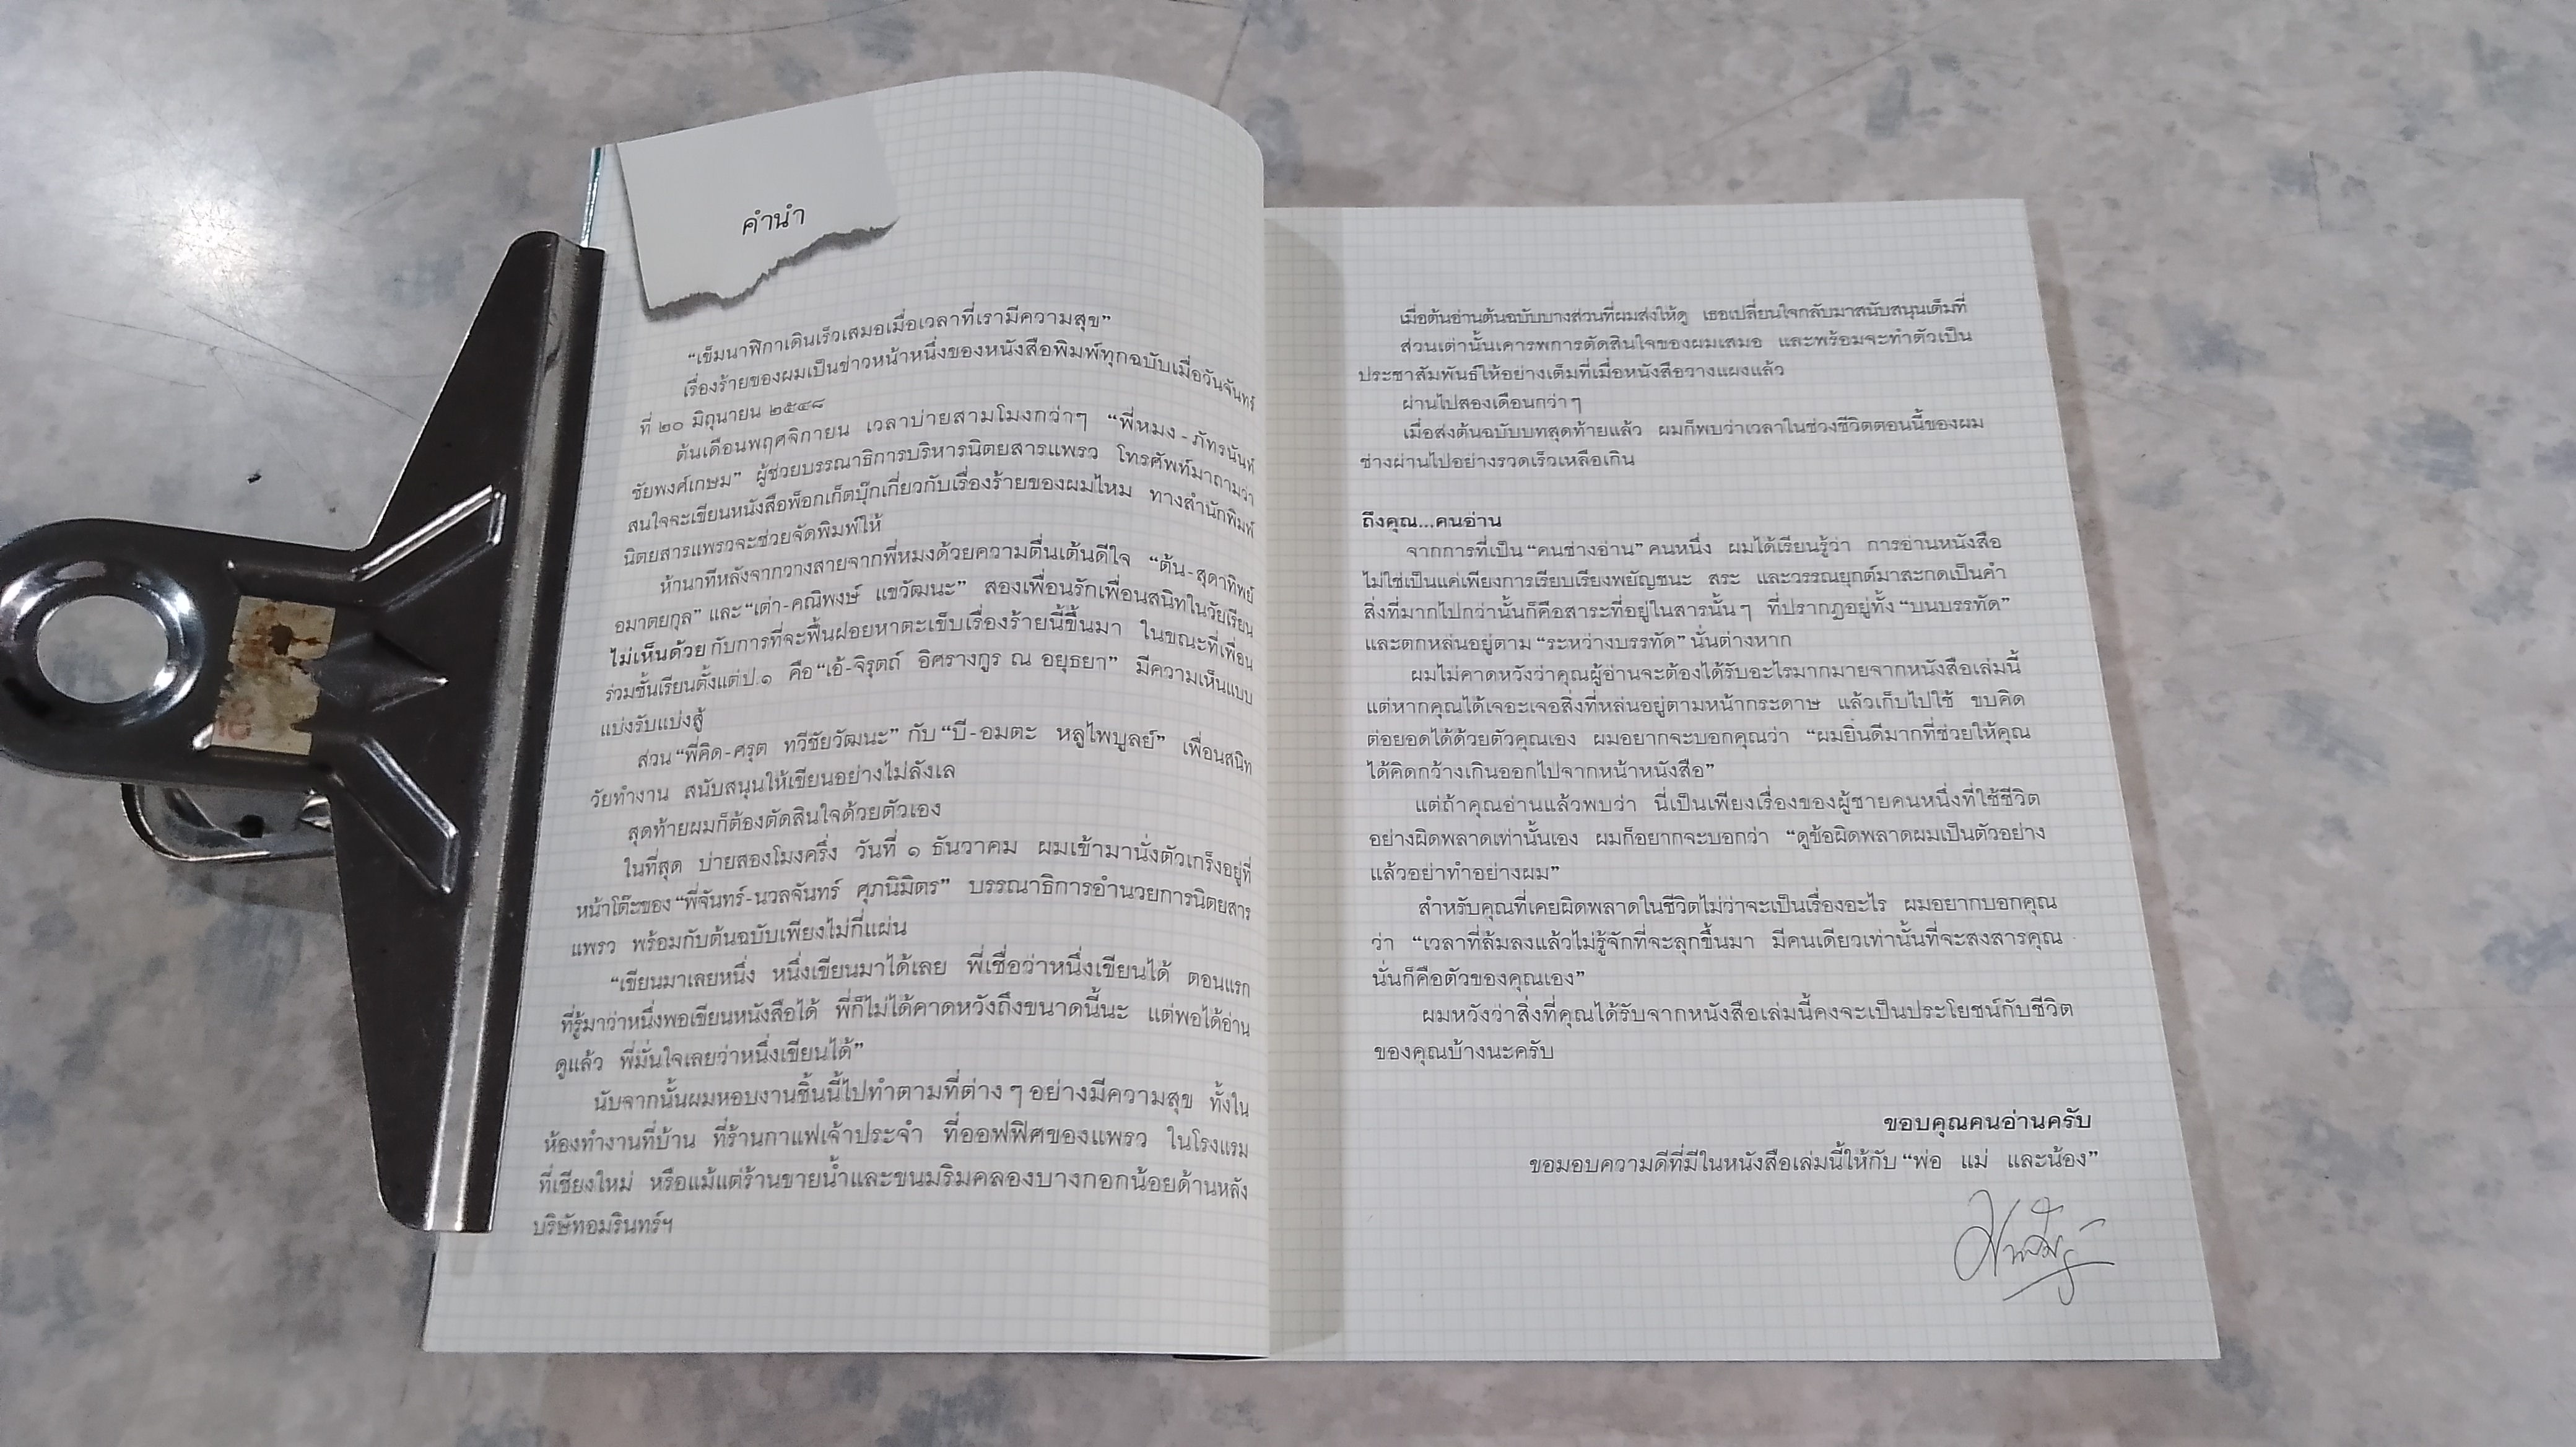 คำนำ
“เข็มนาฬิกาเดินเร็วเสมอเมื่อเวลาที่เรามีความสุข”
เรื่องร้ายของผมเป็นข่าวหน้าหนึ่งของหนังสือพิมพ์ทุกฉบับเมื่อวันจันทร์
ที่ ๒๐ มิถุนายน ๒๕๔๘
ต้นเดือนพฤศจิกายน เวลาบ่ายสามโมงกว่าๆ “พี่หมง-ภัทรนันท์
ชัยพงศ์เกษม” ผู้ช่วยบรรณาธิการบริหารนิตยสารแพรว โทรศัพท์มาถามว่า
สนใจจะเขียนหนังสือพ็อกเก็ตบุ๊กเกี่ยวกับเรื่องร้ายของผมไหม ทางสำนักพิมพ์
นิตยสารแพรวจะช่วยจัดพิมพ์ให้
ห้านาทีหลังจากวางสายจากพี่หมงด้วยความตื่นเต้นดีใจ “ต้น-สุดาทิพย์
อมาตยกุล” และ “เต่า-คณิพงษ์ แขวัฒนะ” สองเพื่อนรักเพื่อนสนิทในวัยเรียน
ไม่เห็นด้วย กับการที่จะฟื้นฝอยหาตะเข็บเรื่องร้ายนี้ขึ้นมา ในขณะที่เพื่อน
ร่วมชั้นเรียนตั้งแต่ป.๑ คือ “เอ้-จิรุตถ์ อิศรางกูร ณ อยุธยา” มีความเห็นแบบ
แบ่งรับแบ่งสู้
ส่วน “พี่คิด-ศรุต ทวีชัยวัฒนะ” กับ “บี-อมตะ หลูไพบูลย์” เพื่อนสนิท
วัยทำงาน สนับสนุนให้เขียนอย่างไม่ลังเล
สุดท้ายผมก็ต้องตัดสินใจด้วยตัวเอง
ในที่สุด บ่ายสองโมงครึ่ง วันที่ ๑ ธันวาคม ผมเข้ามานั่งตัวเกร็งอยู่ที่
หน้าโต๊ะของ “พี่จันทร์-นวลจันทร์ ศุภนิมิตร” บรรณาธิการอำนวยการนิตยสาร
แพรว พร้อมกับต้นฉบับเพียงไม่กี่แผ่น
“เขียนมาเลยหนึ่ง หนึ่งเขียนมาได้เลย พี่เชื่อว่าหนึ่งเขียนได้ ตอนแรก
ที่รู้มาว่าหนึ่งพอเขียนหนังสือได้ พี่ก็ไม่ได้คาดหวังถึงขนาดนี้นะ แต่พอได้อ่าน
ดูแล้ว พี่มั่นใจเลยว่าหนึ่งเขียนได้”
นับจากนั้นผมหอบงานชิ้นนี้ไปทำตามที่ต่าง ๆ อย่างมีความสุข ทั้งใน
ห้องทำงานที่บ้าน ที่ร้านกาแฟเจ้าประจำ ที่ออฟฟิศของแพรว ในโรงแรม
ที่เชียงใหม่ หรือแม้แต่ร้านขายน้ำและขนมริมคลองบางกอกน้อยด้านหลัง
บริษัทอมรินทร์ฯ
เมื่อต้นอ่านต้นฉบับบางส่วนที่ผมส่งให้ดู เธอเปลี่ยนใจกลับมาสนับสนุนเต็มที่
ส่วนเต่านั้นเคารพการตัดสินใจของผมเสมอ และพร้อมจะทำตัวเป็น
ประชาสัมพันธ์ให้อย่างเต็มที่เมื่อหนังสือวางแผงแล้ว
ผ่านไปสองเดือนกว่าๆ
เมื่อส่งต้นฉบับบทสุดท้ายแล้ว ผมก็พบว่าเวลาในช่วงชีวิตตอนนี้ของผม
ช่างผ่านไปอย่างรวดเร็วเหลือเกิน
ถึงคุณ...คนอ่าน
จากการที่เป็น “คนช่างอ่าน” คนหนึ่ง ผมได้เรียนรู้ว่า การอ่านหนังสือ
ไม่ใช่เป็นแค่เพียงการเรียบเรียงพยัญชนะ สระ และวรรณยุกต์มาสะกดเป็นคำ
สิ่งที่มากไปกว่านั้นก็คือสาระที่อยู่ในสารนั้น ๆ ที่ปรากฏอยู่ทั้ง “บนบรรทัด”
และตกหล่นอยู่ตาม “ระหว่างบรรทัด” นั่นต่างหาก
ผมไม่คาดหวังว่าคุณผู้อ่านจะต้องได้รับอะไรมากมายจากหนังสือเล่มนี้
แต่หากคุณได้เจอะเจอสิ่งที่หล่นอยู่ตามหน้ากระดาษ แล้วเก็บไปใช้ ขบคิด
ต่อยอดได้ด้วยตัวคุณเอง ผมอยากจะบอกคุณว่า “ผมยินดีมากที่ช่วยให้คุณ
ได้คิดกว้างเกินออกไปจากหน้าหนังสือ”
แต่ถ้าคุณอ่านแล้วพบว่า นี่เป็นเพียงเรื่องของผู้ชายคนหนึ่งที่ใช้ชีวิต
อย่างผิดพลาดเท่านั้นเอง ผมก็อยากจะบอกว่า “ดูข้อผิดพลาดผมเป็นตัวอย่าง
แล้วอย่าทำอย่างผม”
สำหรับคุณที่เคยผิดพลาดในชีวิตไม่ว่าจะเป็นเรื่องอะไร ผมอยากบอกคุณ
ว่า “เวลาที่ล้มลงแล้วไม่รู้จักที่จะลุกขึ้นมา มีคนเดียวเท่านั้นที่จะสงสารคุณ
นั่นก็คือตัวของคุณเอง”
ผมหวังว่าสิ่งที่คุณได้รับจากหนังสือเล่มนี้คงจะเป็นประโยชน์กับชีวิต
ของคุณบ้างนะครับ
ขอบคุณคนอ่านครับ
ขอมอบความดีที่มีในหนังสือเล่มนี้ให้กับ “พ่อ แม่ และน้อง”